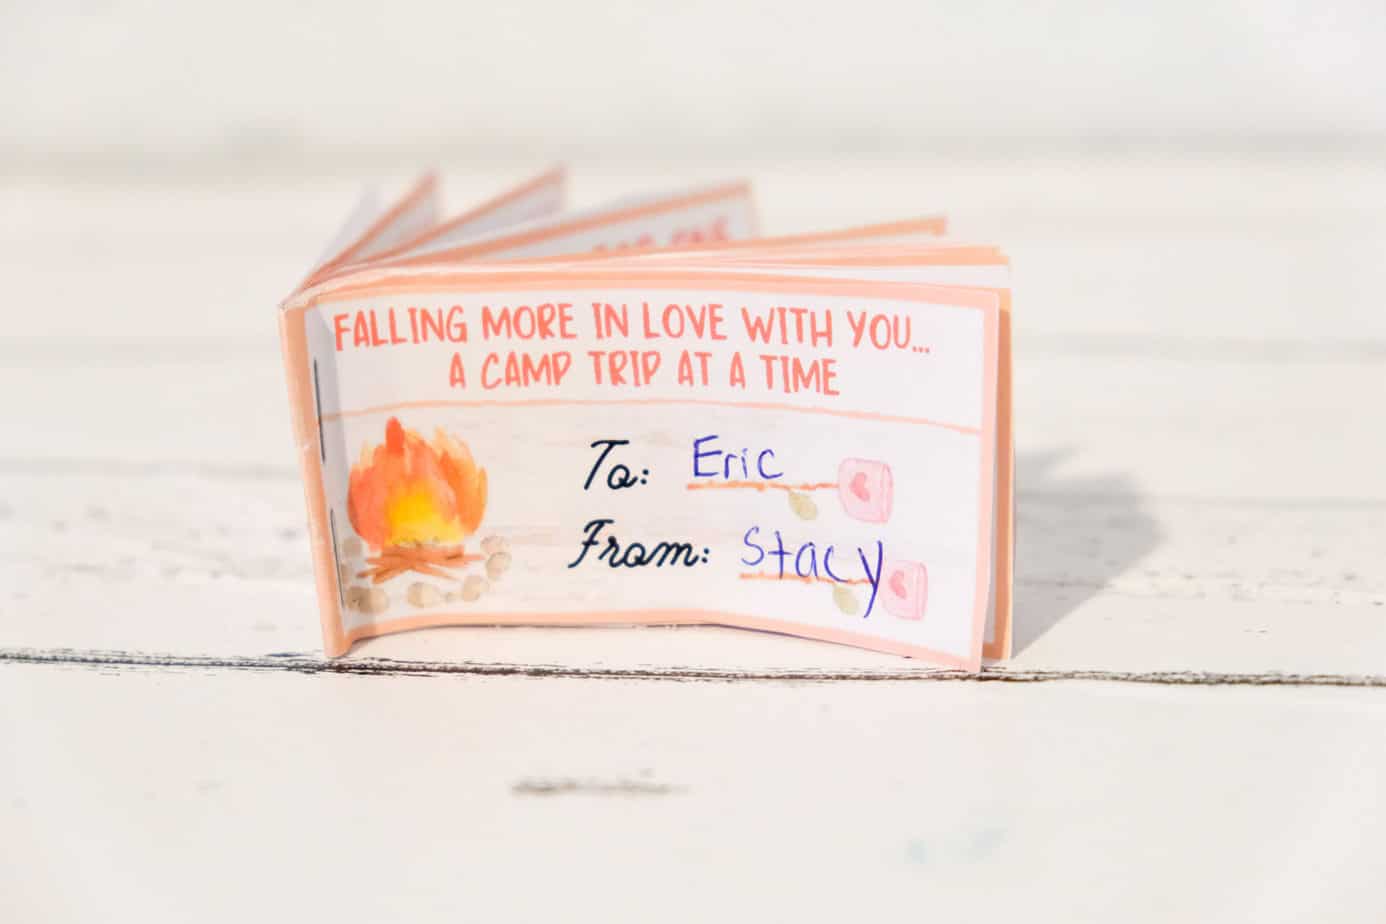 FALLING MORE IN LOVE WITH YOU...
A CAMP TRIP AT A TIME
To: Eric
From: Stacy